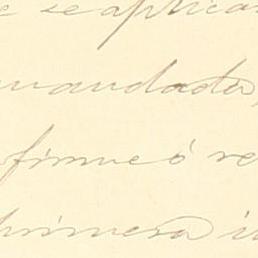 e se aplica
mandada,
firme ó re
primera i